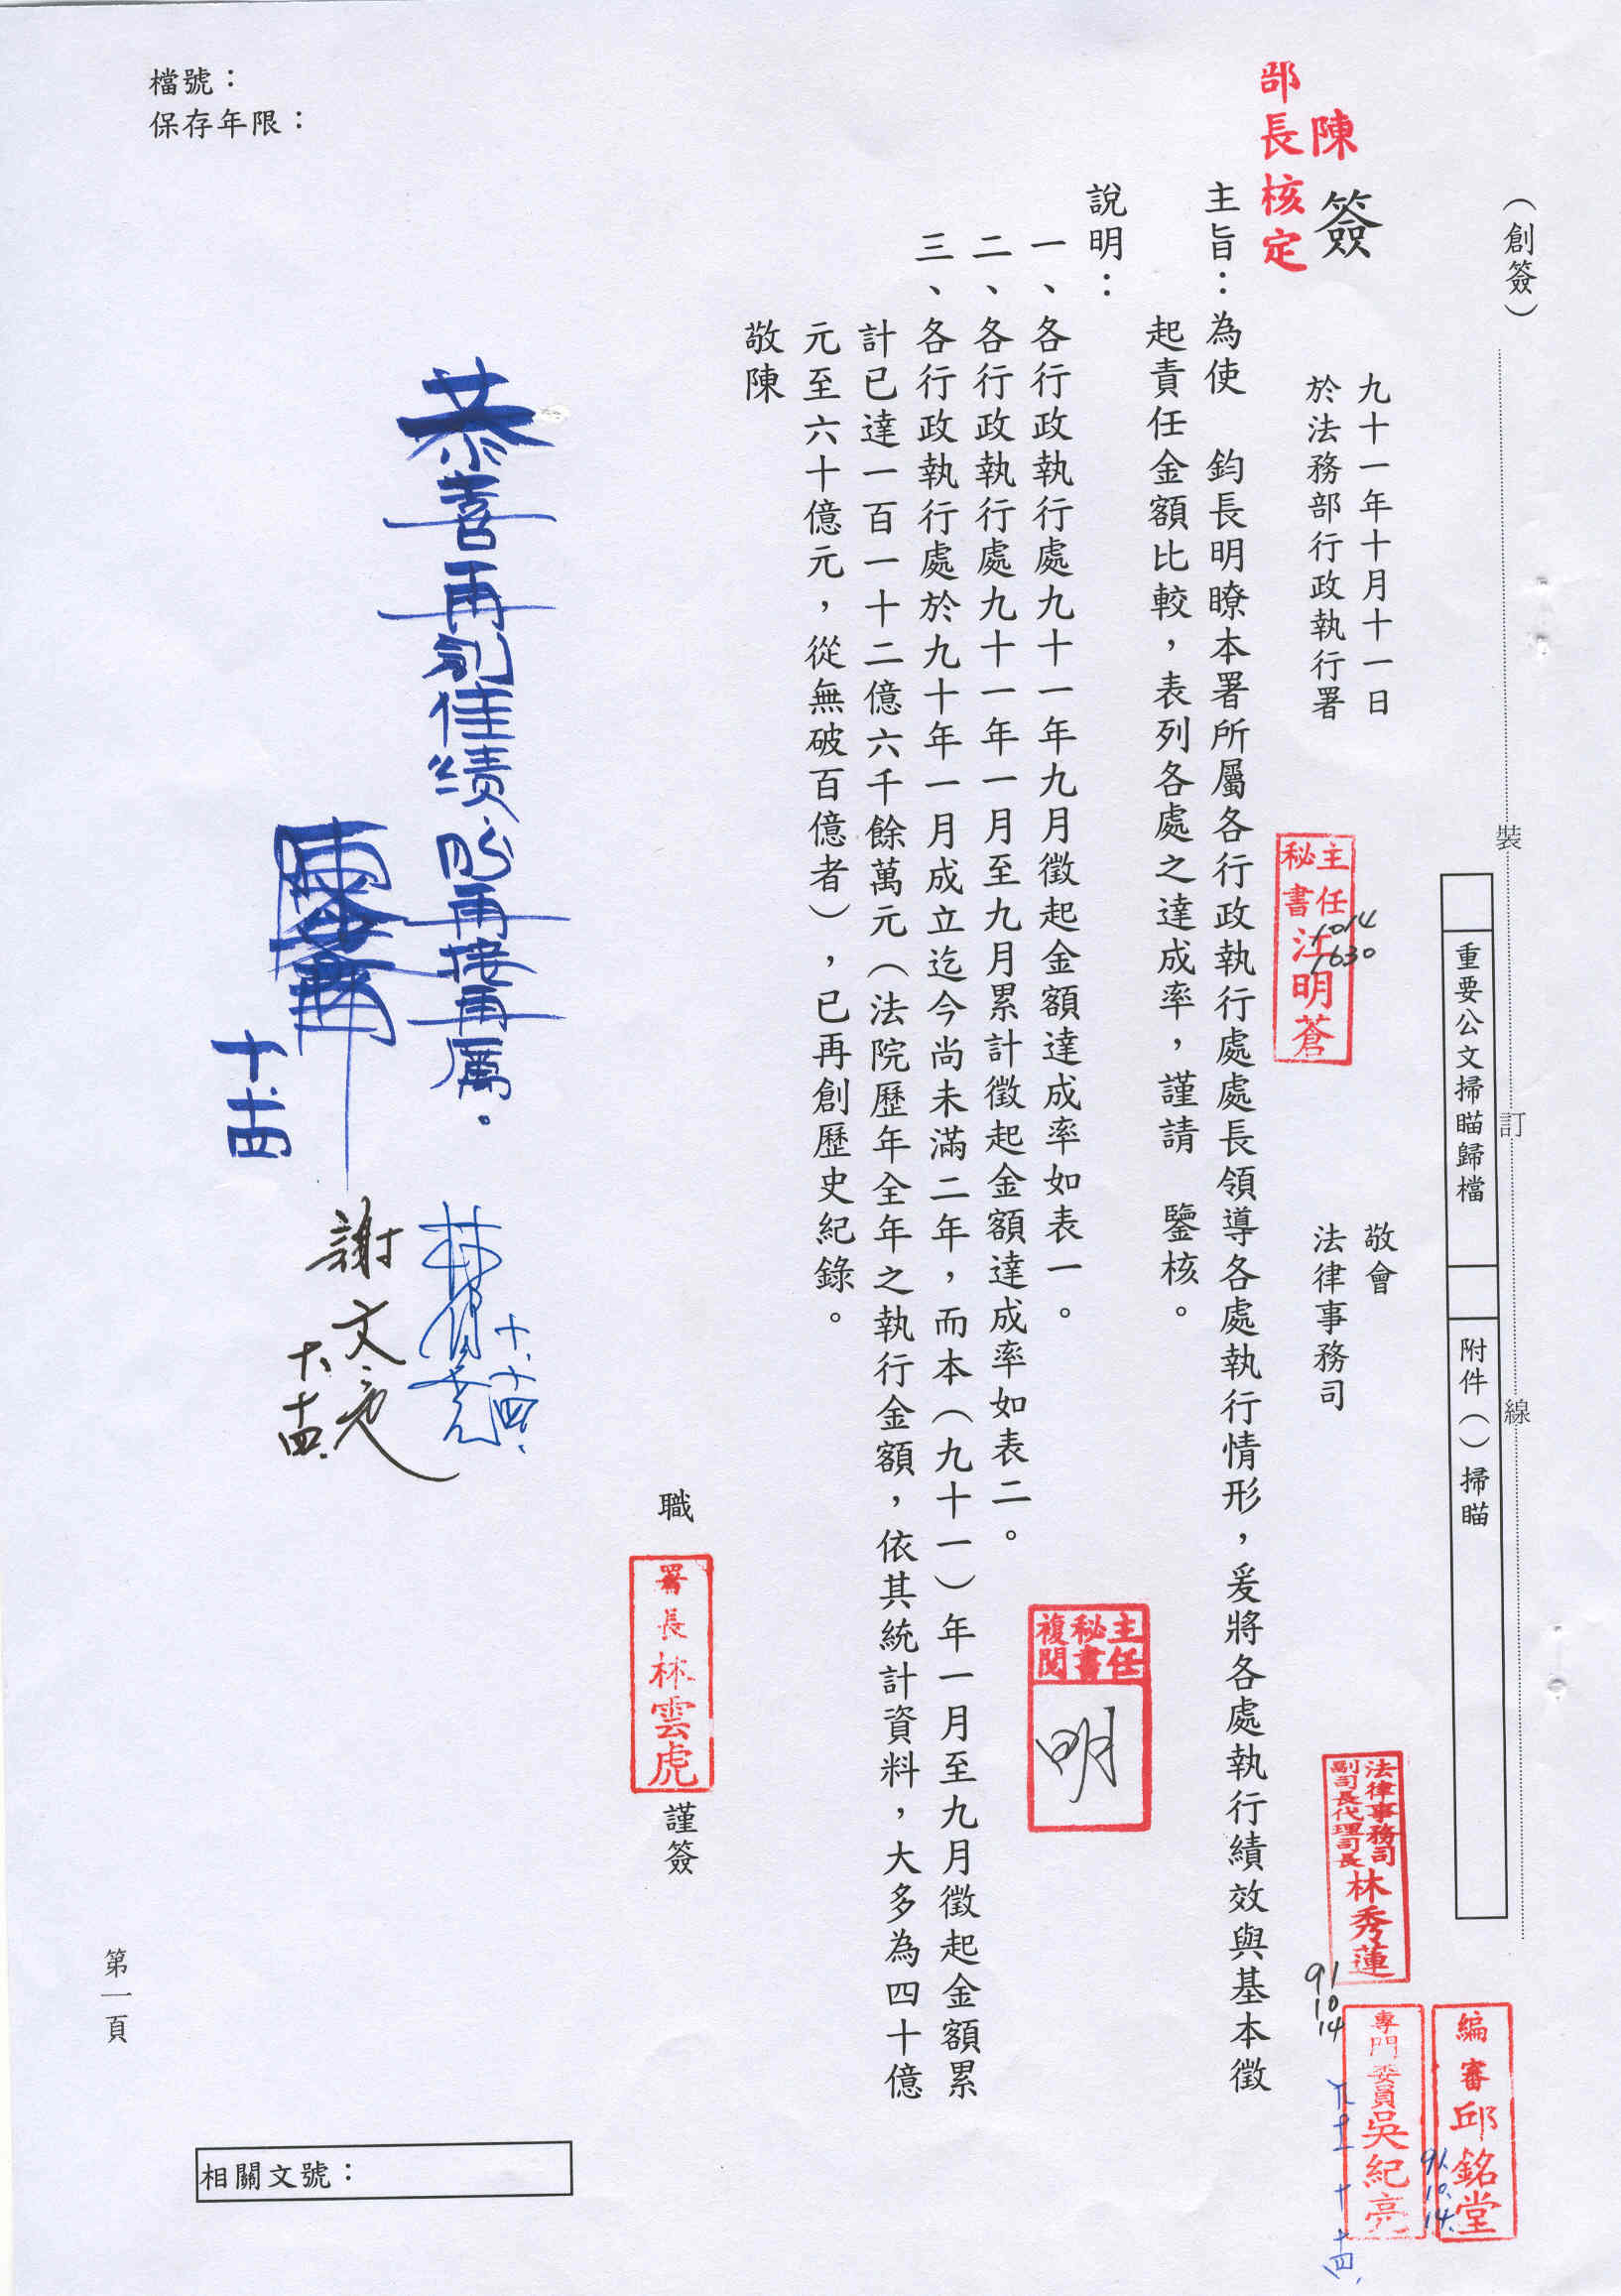 檔號：
保存年限：
（創簽）
裝
訂
線
重要公文掃瞄歸檔
附件（）掃瞄
編審邱銘堂
91.
10.
14.
專門委員吳紀亮
法律事務司
副司長代理司長
林秀蓮
91
10
14
敬會
法律事務司
九十一年十月十一日
於法務部行政執行署
簽
陳
部長核定
主任
秘書
江明蒼
1014
1630
主旨：為使　鈞長明瞭本署所屬各行政執行處處長領導各處執行情形，爰將各處執行績效與基本徵
起責任金額比較，表列各處之達成率，謹請　鑒核。
說明：
一、各行政執行處九十一年九月徵起金額達成率如表一。
二、各行政執行處九十一年一月至九月累計徵起金額達成率如表二。
三、各行政執行處於九十年一月成立迄今尚未滿二年，而本（九十一）年一月至九月徵起金額累
計已達一百一十二億六千餘萬元（法院歷年全年之執行金額，依其統計資料，大多為四十億
元至六十億元，從無破百億者），已再創歷史紀錄。
敬陳
主任
秘書
複閱
明
職
署長林雲虎
謹簽
恭喜再創佳績盼再接再厲。
十、十四、
謝文定
十、十四.
十十四
第一頁
相關文號：